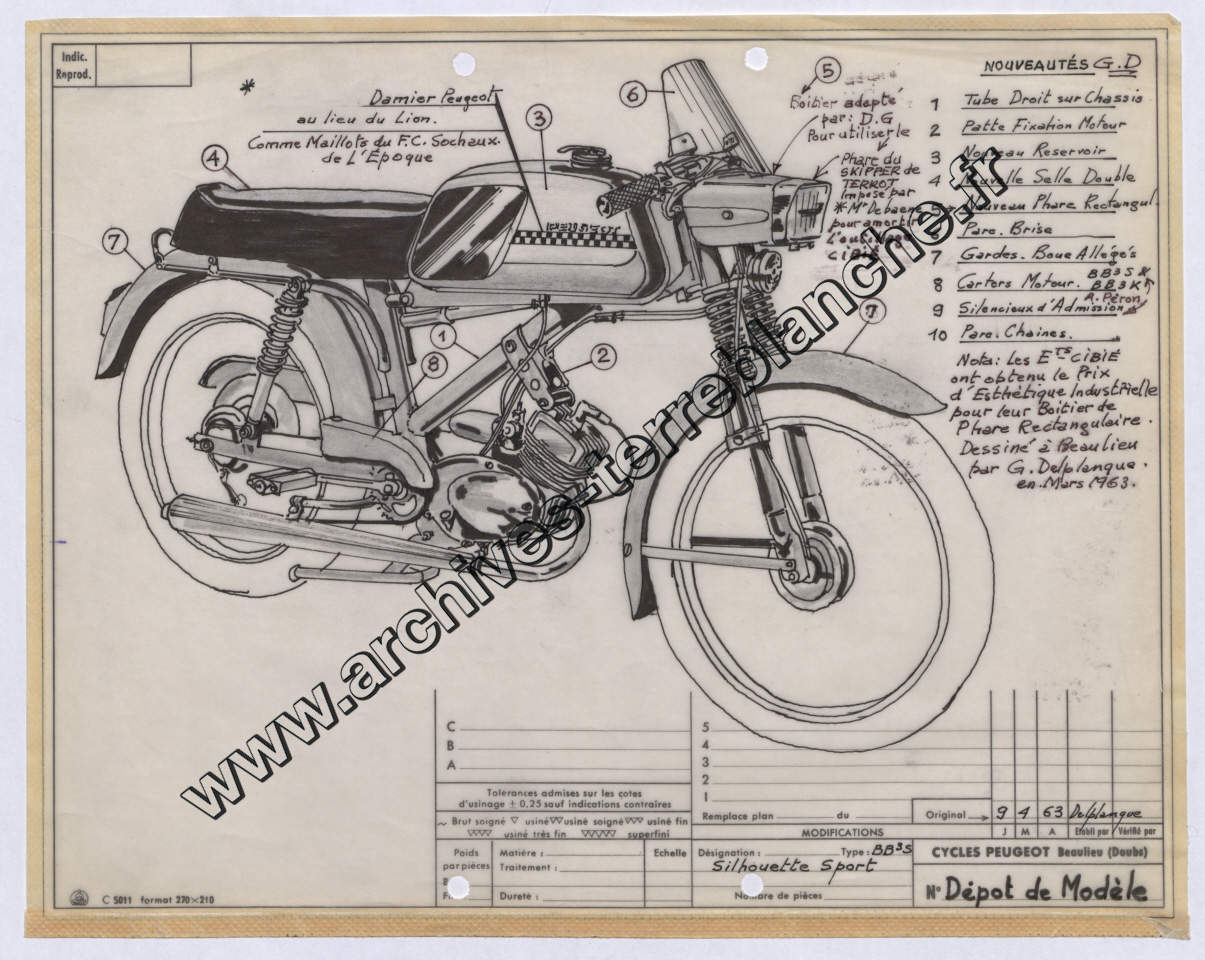 Indic.
Reprod.
*
Damier Peugeot
au lieu du Lion.
Comme Maillots du F.C. Sochaux.
de L'Époque
1
2
3
4
5
6
7
7
8
Boitier adapté
par: D.G
Pour utiliser le
Phare du
SKIPPER de
TERROT
imposé par
* Mr Debaene
pour amortir
L'outillage
CIBIÉ
NOUVEAUTÉS G.D
1 Tube Droit sur Chassis
2 Patte Fixation Moteur
3 Nouveau Reservoir
4 Nouvelle Selle Double
Nouveau Phare Rectangul.
Pare. Brise
7 Gardes. Boue Allégés
8 Carters Moteur. BB3S
BB3K
R. Péron
9 Silencieux d'Admission
10 Pare. Chaines.
Nota: Les ETS CIBIÉ
ont obtenu le Prix
d'Esthétique Industrielle
pour leur Boitier de
Phare Rectangulaire.
Dessiné à Beaulieu
par G. Delplanque.
en. Mars 1963.
www.archives-terreblanche.fr
C
B
A
Tolérances admises sur les cotes
d'usinage ± 0,25 sauf indications contraires
~ Brut soigné ▽ usiné ▽▽ usiné soigné ▽▽ usiné fin
▽▽▽ usiné très fin ▽▽▽▽ superfini
Poids
par pièces
Matière :
Traitement :
Dureté :
Echelle
5
4
3
2
1
Remplace plan du
MODIFICATIONS
Original 9 4 63 Delplanque
J M A Etabli par Vérifié par
Désignation : Type : BB3S
Silhouette Sport
Nombre de pièces
CYCLES PEUGEOT Beaulieu (Doubs)
N° Dépot de Modèle
C 5011 format 270×210